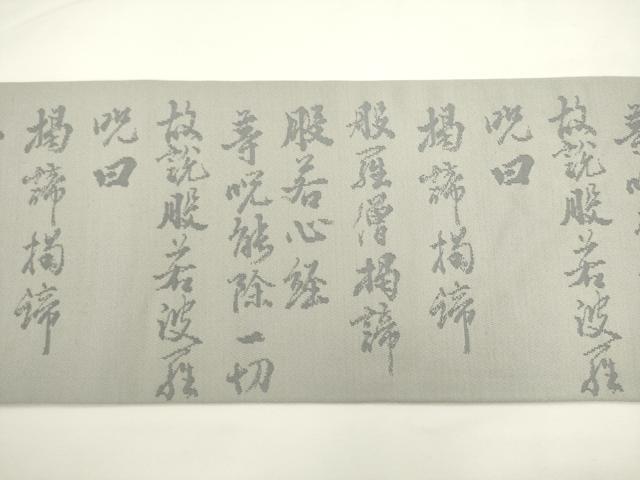 故說般若波羅
呪曰
揭諦揭諦
般羅僧揭諦
般若心經
等呪能除一切
故說般若波羅
呪曰
揭諦揭諦